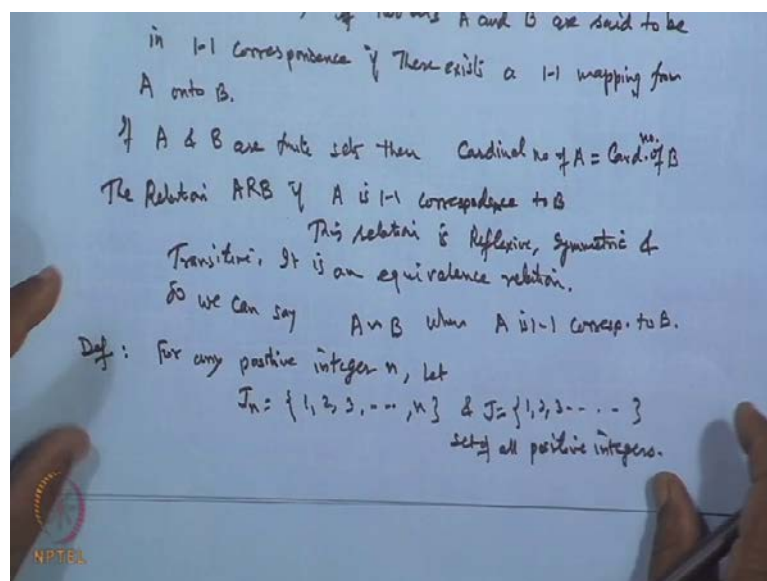 A and B are said to be
in 1-1 correspondence if There exists a 1-1 mapping from
A onto B.
If A & B are finite sets then Cardinal no of A = Card. no. of B
The Relation ARB if A is 1-1 correspondence to B
This relation is Reflexive, Symmetric &
Transitive. It is an equivalence relation.
So we can say A ~ B when A is 1-1 corresp. to B.
Def : For any positive integer n, let
Jn = { 1, 2, 3, ---, n } & J = { 1, 2, 3 - - - - }
set of all positive integers.
NPTEL